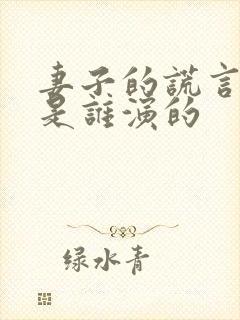 妻子的謊言
是誰演的
绿水青